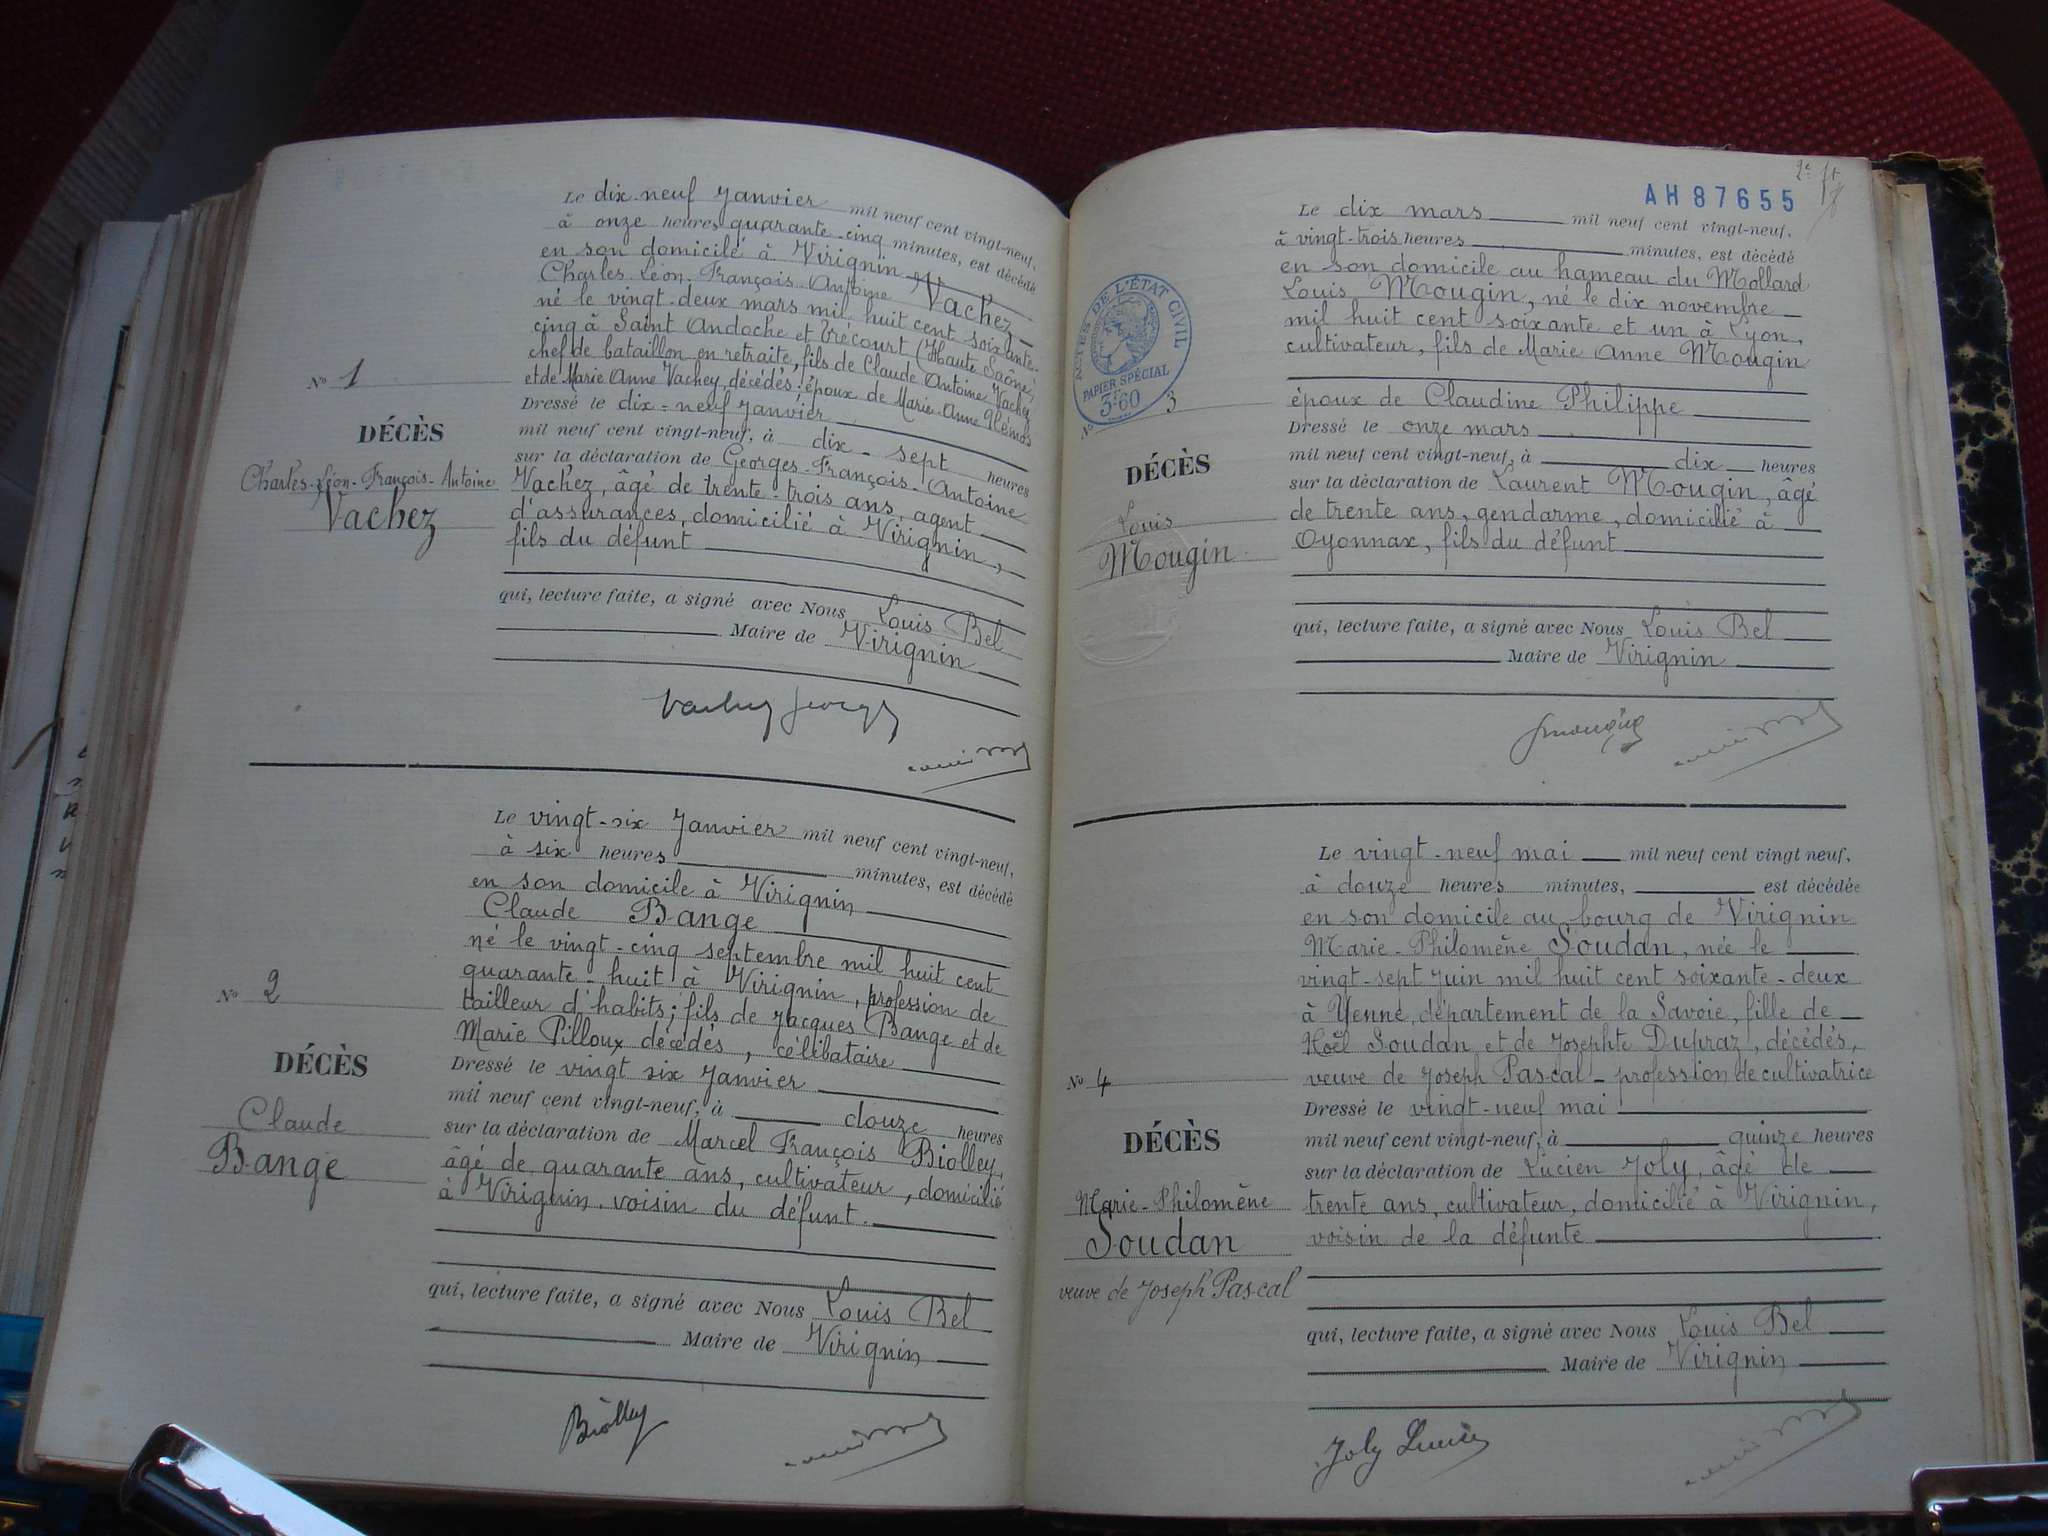 Le dix neuf Janvier mil neuf cent vingt-neuf,
à onze heures quarante-cinq minutes, est décédé
en son domicilé à Virignin
Charles-Léon-François-Antoine Vachez
né le vingt-deux mars mil huit cent soixante-
cinq à Saint Andoche et Trécourt (Haute Saône)
chef de bataillon en retraite, fils de Claude Antoine Vachey
et de Marie Anne Vachey, décédés; époux de Marie-Anne
Dressé le dix-neuf Janvier
mil neuf cent vingt-neuf, à dix-sept heures
sur la déclaration de Georges-François-Antoine
Vachez, âgé de trente-trois ans, agent
d'assurances, domicilié à Virignin,
fils du défunt
qui, lecture faite, a signé avec Nous Louis Bel
Maire de Virignin
No 1
DÉCÈS
Charles-Léon-François-Antoine
Vachez
Le vingt-six Janvier mil neuf cent vingt-neuf,
à six heures minutes, est décédé
en son domicile à Virignin
Claude Bange
né le vingt-cinq septembre mil huit cent
quarante-huit à Virignin, profession de
tailleur d'habits; fils de Jacques Bange et de
Marie Pilloux décédés, célibataire
Dressé le vingt six Janvier
mil neuf cent vingt-neuf, à douze heures
sur la déclaration de Marcel François Biolley,
âgé de quarante ans, cultivateur, domicilié
à Virignin, voisin du défunt.
qui, lecture faite, a signé avec Nous Louis Bel
Maire de Virignin
Biolley
No 2
DÉCÈS
Claude
Bange
AH87655
ACTES DE L'ÉTAT CIVIL
PAPIER SPÉCIAL
3f60
Le dix mars mil neuf cent vingt-neuf,
à vingt-trois heures minutes, est décédé
en son domicile au hameau du Mollard
Louis Mougin, né le dix novembre
mil huit cent soixante et un à Lyon,
cultivateur, fils de Marie Anne Mougin
époux de Claudine Philippe
Dressé le onze mars
mil neuf cent vingt-neuf, à dix heures
sur la déclaration de Laurent Mougin, âgé
de trente ans, gendarme, domicilié à
Oyonnax, fils du défunt
qui, lecture faite, a signé avec Nous Louis Bel
Maire de Virignin
No 3
DÉCÈS
Louis
Mougin
Le vingt-neuf mai mil neuf cent vingt neuf,
à douze heures minutes, est décédée
en son domicile au bourg de Virignin
Marie-Philomène Soudan, née le
vingt-sept Juin mil huit cent soixante-deux
à Yenne, département de la Savoie, fille de
Noël Soudan et de Josephte Dupraz, décédés,
veuve de Joseph Pascal - profession de cultivatrice
Dressé le vingt-neuf mai
mil neuf cent vingt-neuf, à quinze heures
sur la déclaration de Lucien Joly, âgé de
trente ans, cultivateur, domicilié à Virignin,
voisin de la défunte
qui, lecture faite, a signé avec Nous Louis Bel
Maire de Virignin
Joly Lucien
No 4
DÉCÈS
Marie-Philomène
Soudan
veuve de Joseph Pascal